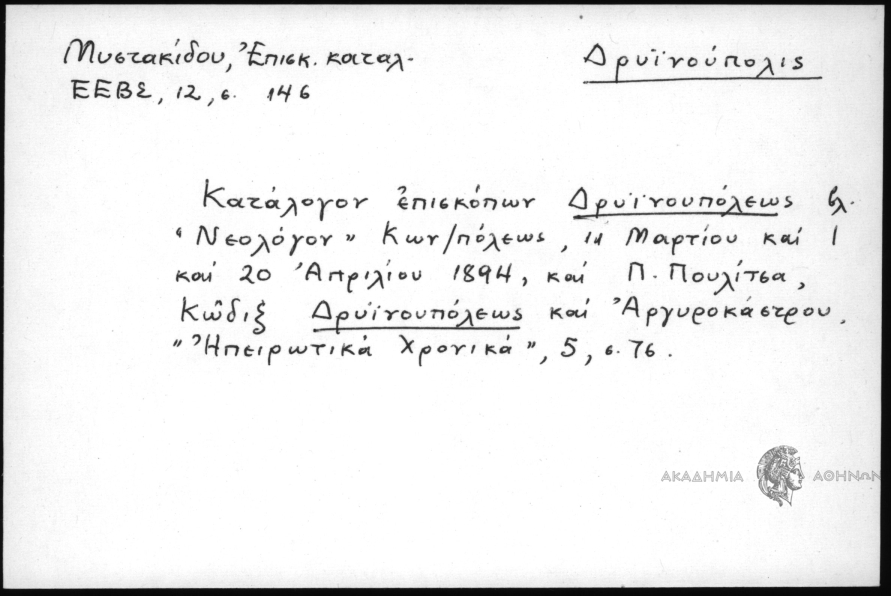 Μυστακίδου, Ἐπισκ. καταλ.
ΕΕΒΣ, 12, σ. 146
Δρυϊνούπολις
Κατάλογον ἐπισκόπων Δρυϊνουπόλεως βλ.
"Νεολόγον" Κων/πόλεως, 14 Μαρτίου καί 1
καί 20 Ἀπριλίου 1894, καί Π. Πουλίτσα,
Κῶδιξ Δρυϊνουπόλεως καί Ἀργυροκάστρου,
"Ἠπειρωτικά Χρονικά", 5, σ. 76.
ΑΚΑΔΗΜΙΑ ΑΘΗΝΩΝ